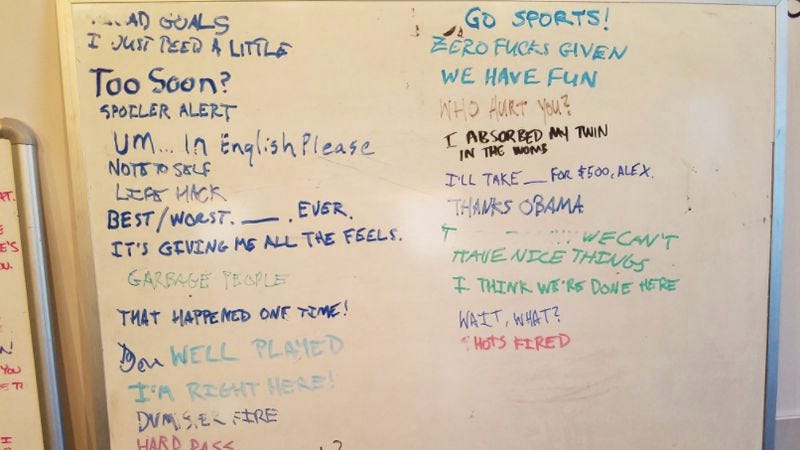 GOALS
I JUST PEED A LITTLE
Too Soon?
SPOILER ALERT
UM... In English Please
NOTE TO SELF
LIFE HACK
BEST/WORST. ___ . EVER.
IT'S GIVING ME ALL THE FEELS.
GARBAGE PEOPLE
THAT HAPPENED ONE TIME!
WELL PLAYED
I'M RIGHT HERE!
FIRE
HARD PASS
GO SPORTS!
ZERO FUCKS GIVEN
WE HAVE FUN
WHO HURT YOU?
I ABSORBED MY TWIN
IN THE WOMB
I'LL TAKE ___ FOR $500, ALEX.
THANKS OBAMA
WE CAN'T
HAVE NICE THINGS
I THINK WE'RE DONE HERE
WAIT, WHAT?
SHOTS FIRED